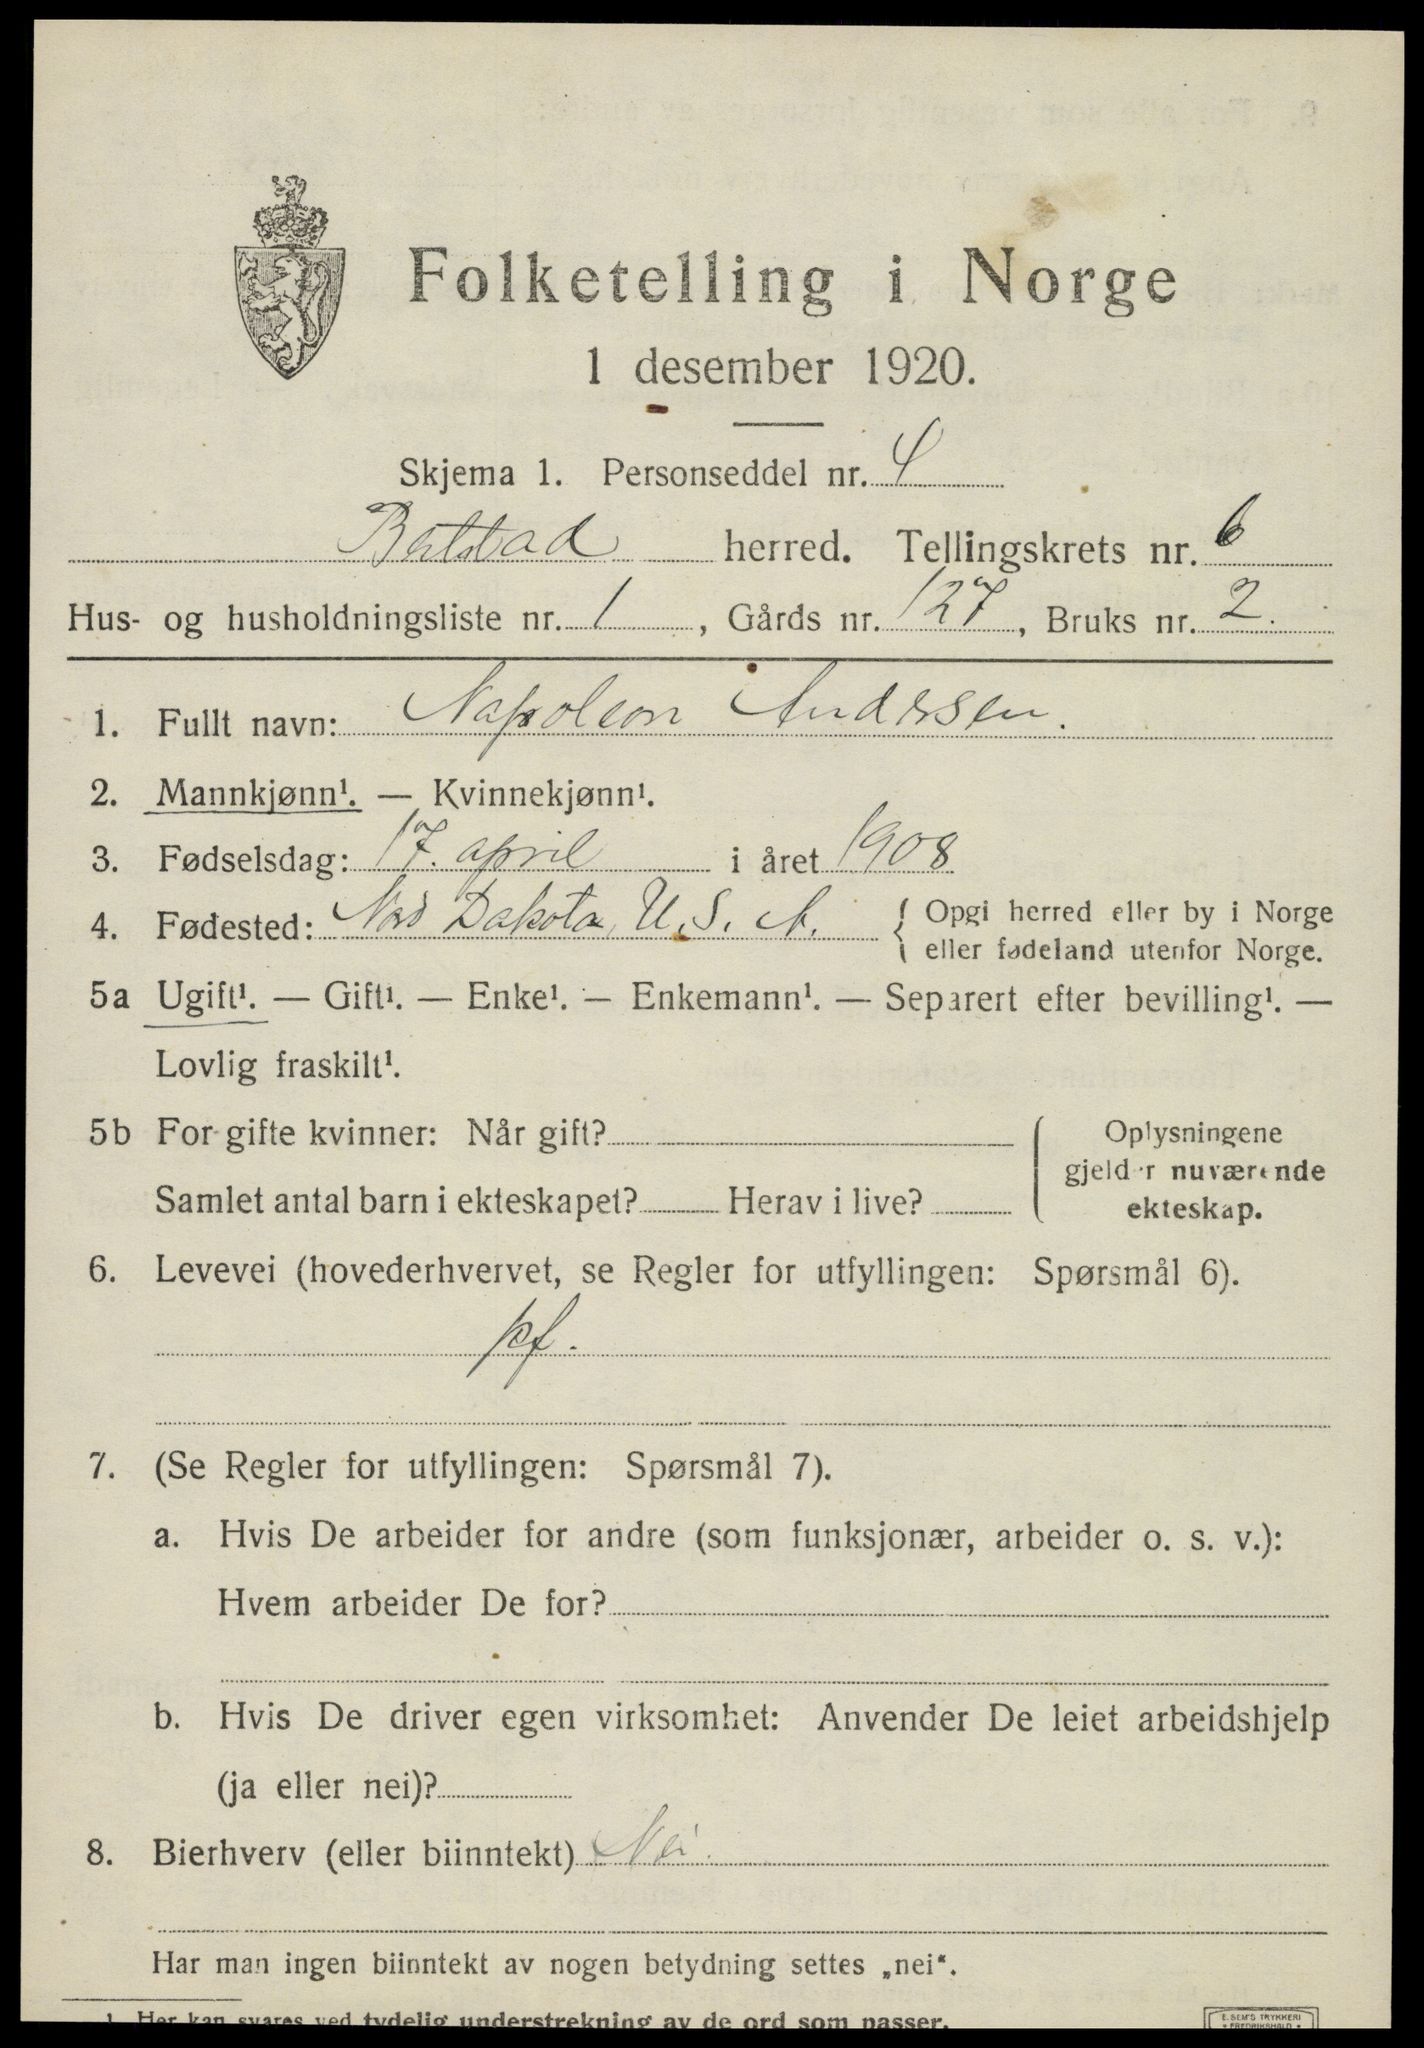 Folketelling i Norge
1 desember 1920.
Skjema 1. Personseddel nr. 4
herred. Tellingskrets nr. 6
Hus- og husholdningsliste nr. 1, Gårds nr. 127, Bruks nr. 2.
1. Fullt navn: Napoleon Andersen.
2. Mannkjønn¹. — Kvinnekjønn¹.
3. Fødselsdag: 17. april i året 1908
4. Fødested: Nord Dakota, U.S.A. { Opgi herred eller by i Norge
eller fødeland utenfor Norge.
5a Ugift¹. — Gift¹. — Enke¹. — Enkemann¹. — Separert efter bevilling¹. —
Lovlig fraskilt¹.
5b For gifte kvinner: Når gift?
Samlet antal barn i ekteskapet? Herav i live?
Oplysningene
gjelder nuværende
ekteskap.
6. Levevei (hovederhvervet, se Regler for utfyllingen: Spørsmål 6).
pf.
7. (Se Regler for utfyllingen: Spørsmål 7).
a. Hvis De arbeider for andre (som funksjonær, arbeider o. s. v.):
Hvem arbeider De for?
b. Hvis De driver egen virksomhet: Anvender De leiet arbeidshjelp
(ja eller nei)?
8. Bierhverv (eller biinntekt) Nei.
Har man ingen biinntekt av nogen betydning settes „nei“.
1. Her kan svares ved tydelig understrekning av de ord som passer.
E. SEM'S TRYKKERI
• FREDRIKSHALD •